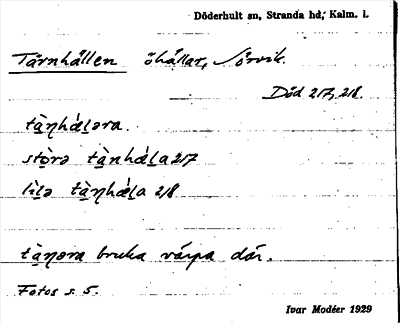 Döderhult sn, Stranda hd, Kalm. l.
Tärnhällen öhällar, Sörvik.
Död 217, 218.
tä̀ɳhǽḷəra.
stò̱rə tä̀ɳhǽḷa 217
lìḷə tä̀ɳhǽḷa 218
tä̀ɳəra bruka värpa där.
Fotos s. 5.
Ivar Modéer 1929